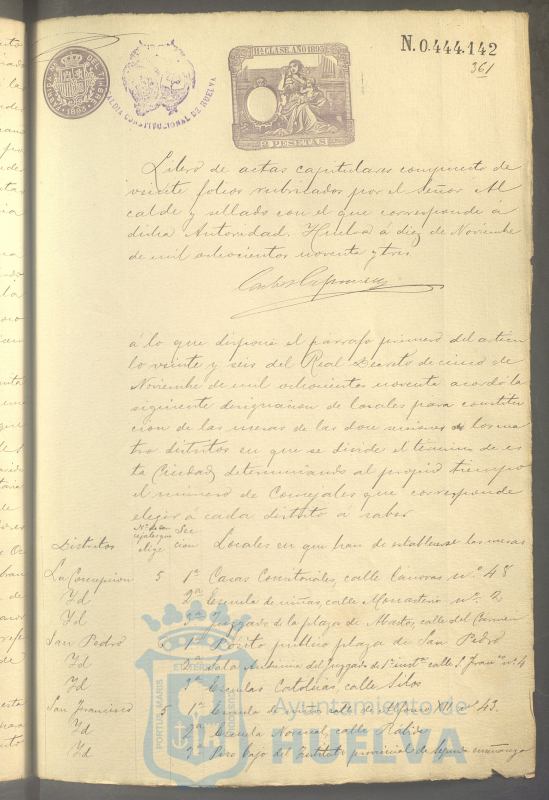 11ª CLASE. AÑO 1893
N.0.444.142
361
ALCALDIA CONSTITUCIONAL DE HUELVA
2 PESETAS
Libro de actas capitulares compuesto de
veinte folios rubricados por el Señor Al
calde y sellado con el que corresponde á
dicha Autoridad. Huelva á diez de Noviembre
de mil ochocientos noventa y tres.
á lo que dispone el párrafo primero del articu
lo veinte y seis del Real Decreto de cinco de
Noviembre de mil ochocientos noventa acordó la
siguiente designacion de locales para constitu
cion de las mesas de las doce secciones de los cua
tro distritos en que se divide el término de es
ta Ciudad, determinando al propio tiempo
el número de Concejales que corresponde
elegir á cada distrito á saber
Distritos Nº de con cejales que elige Sec cion Locales en que han de establecerse las mesas
La Concepcion 5 1ª Casas Consistoriales, calle Canovas nº 48
Yd 2ª Escuela de niñas, calle Monasterio nº 2
Yd 3ª Juzgado de la plaza de Abastos, calle del Carmen
San Pedro 1ª Posito publico plaza de San Pedro
Yd 2ª Sala Audiencia del Juzgado de 1ª inst.ª calle S. Fran.co nº 4
Yd 3ª Escuelas Catolicas, calle Silos
San Francisco 5 1ª Escuela de niños calle de Alfonso XII nº 43
Yd 2ª Escuela Normal, calle Rábida
Yd 3ª Piso bajo del Instituto provincial de segunda enseñanza
Ayuntamiento de
HUELVA
PORTUS MARIS
ET TERRE
CUSTODIA